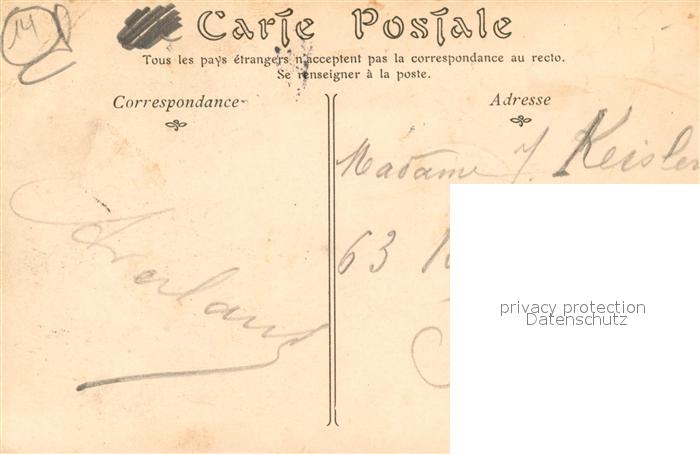 14
Carte Postale
Tous les pays étrangers n'acceptent pas la correspondance au recto.
Se renseigner à la poste.
Correspondance
Adresse
Madame J. Keisler
63
privacy protection
Datenschutz